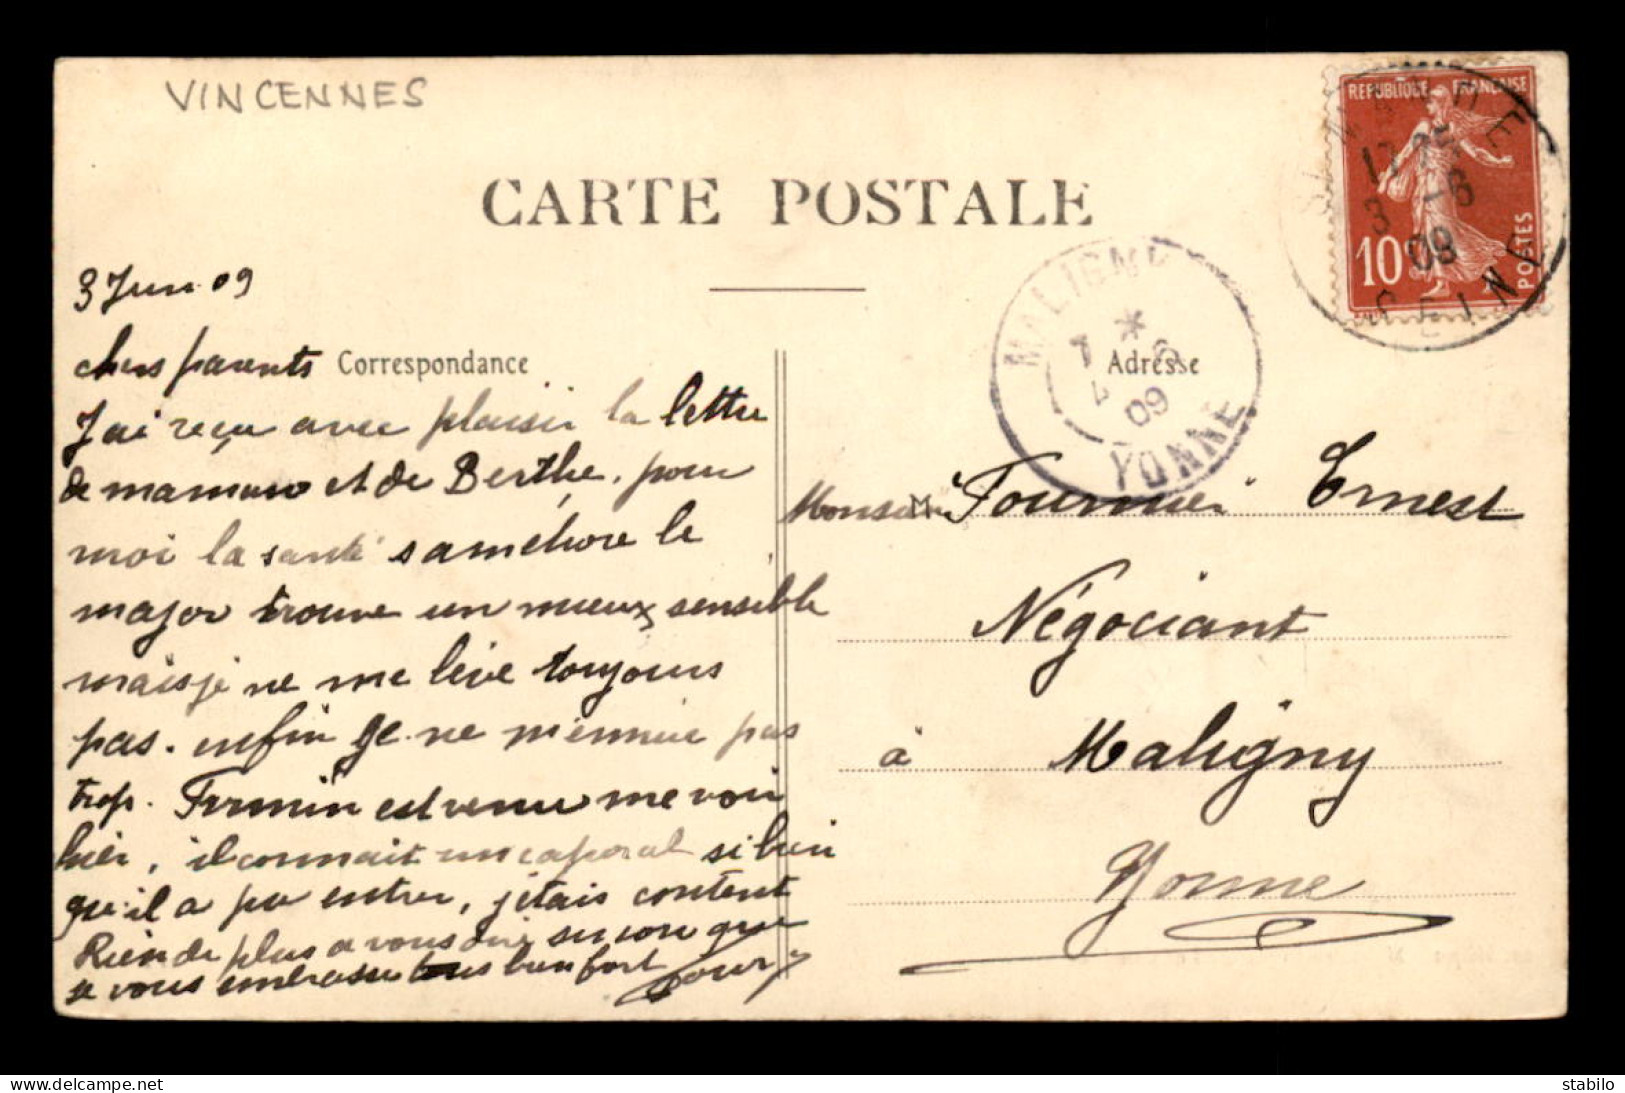 VINCENNES
CARTE POSTALE
REPUBLIQUE FRANÇAISE
10c
POSTES
ST MANDE
17 25
3 -6
09
SEINE
MALIGNY
*
7
4 6
09
YONNE
3 Juin 09
chers parents
Correspondance
Adresse
J'ai reçu avec plaisir la lettre
de maman et de Berthe, pour
moi la santé saméliore le
major trouve un mieux sensible
mais je ne me lève toujours
pas. enfin je ne m'ennuie pas
trop. Firmin est venu me voir
hier, il connait un caporal si bien
qu'il a pu entrer, jétais content
Rien de plus a vous dire encore que
je vous embrasse tous bien fort
Monsieur M Fournier Ernest
Négociant
à Maligny
Yonne
delcampe.net/fr/collections/item/2242112332.html
stabilo